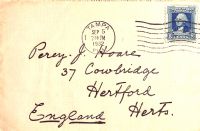 TAMPA
SEP 5
Percy J. Hoare
37 Cowbridge
Hertford
England Herts.